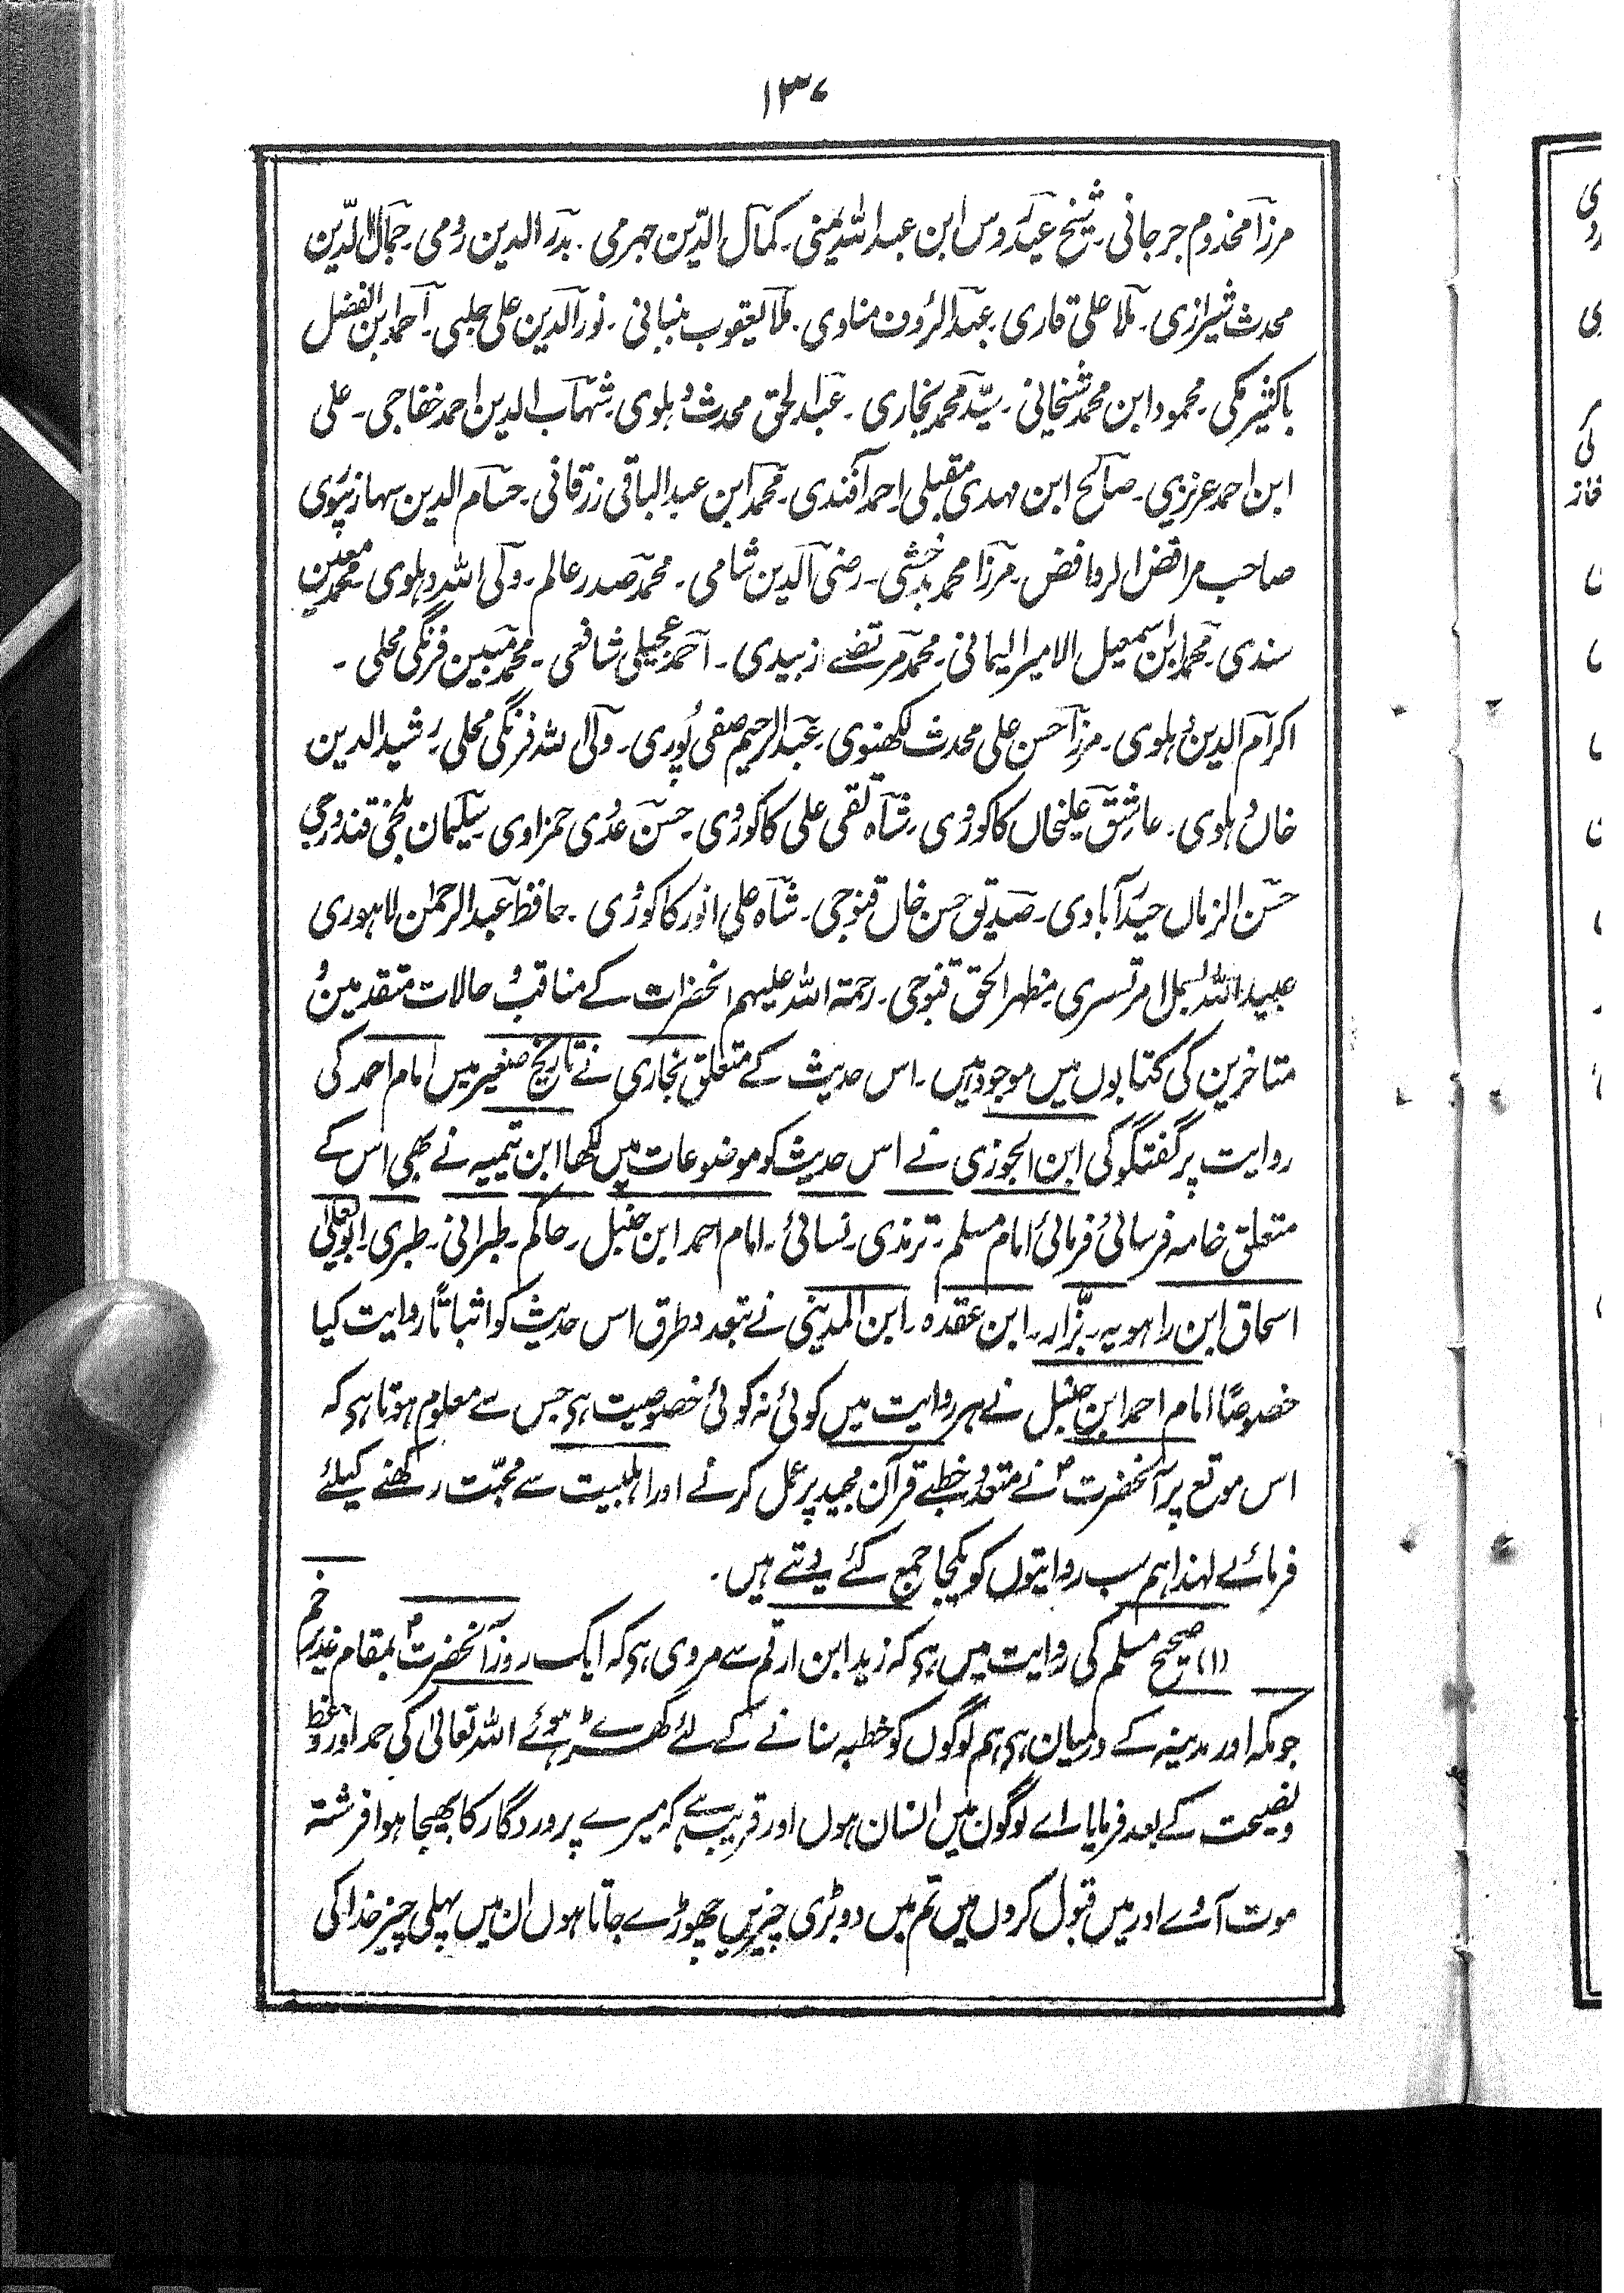 ۱۳۷
مرزا مخدوم جرجانی۔ شیخ عیدروس ابن عبداللہ یمنی۔ کمال الدّین جہرمی۔ بدر الدین رومی۔ جمال الدّین
محدث شیرازی۔ ملا علی قاری۔ عبدالرؤف مناوی۔ ملا یعقوب بنبانی۔ نور الدین علی حلبی۔ احمد ابن الفضل
باکثیر مکی۔ محمود ابن محمد شیخانی۔ سیّد محمد بخاری۔ عبدالحق محدث دہلوی۔ شہاب الدین احمد خفاجی۔ علی
ابن احمد عزیزی۔ صالح ابن مہدی مقبلی۔ احمد آفندی۔ محمد ابن عبد الباقی زرقانی۔ حسام الدین سہارنپوری
صاحب مرافض الروافض۔ مرزا محمد بدخشی۔ رضی الدین شامی۔ محمد صدر عالم۔ ولی اللہ دہلوی۔ محمد معین
سندی۔ محمد ابن اسمٰعیل الامیر الیمانی۔ محمد مرتضےٰ زبیدی۔ احمد عجیلی شافعی۔ محمد مبین فرنگی محلی۔
اکرام الدین دہلوی۔ مرزا حسن علی محدث لکھنوی۔ عبد الرحیم صفی پُوری۔ ولی اللہ فرنگی محلی۔ رشید الدین
خاں دہلوی۔ عاشق علیخاں کاکوروی۔ شاہ تقی علی کاکوروی۔ حسن عدوی حمزاوی۔ سلیمان بلخی قندوزی
حسن الزماں حیدرآبادی۔ صدیق حسن خاں قنوجی۔ شاہ علی انور کاکوروی۔ حافظ عبد الرحمٰن لاہوری
عبید اللہ بسمل امرتسری۔ مظہر الحق قنوجی۔ رحمۃ اللہ علیہم انحضرات کے مناقب و حالات متقدمین و
متاخرین کی کتابوں میں موجود ہیں۔ اس حدیث کے متعلق بخاری نے تاریخ صغیر میں امام احمد کی
روایت پر گفتگو کی ابن الجوزی نے اس حدیث کو موضوعات میں لکھا ابن تیمیہ نے بھی اس کے
متعلق خامہ فرسائی فرمائی امام مسلم۔ ترمذی۔ نسائی۔ امام احمد ابن حنبل۔ حاکم۔ طبرانی۔ طبری۔ ابو یعلیٰ
اسحاق ابن راہویہ۔ بزّار۔ ابن عقدہ۔ ابن المدینی نے تبعدد طرق اس حدیث کو اثباتاً روایت کیا
خصوصًا امام احمد ابن حنبل نے ہر روایت میں کوئی نہ کوئی خصوصیت ہی جس سے معلوم ہوتا ہی کہ
اس موقع پر آنحضرتؐ نے متعدد خطبے قرآن مجید پر عمل کرنے اور اہلبیت سے محبّت رکھنے کیلئے
فرمائے لہٰذا ہم سب روایتوں کو یکجا جمع کئے دیتے ہیں۔
(۱) صحیح مسلم کی روایت میں ہی کہ زید ابن ارقم سے مروی ہی کہ ایک روز آنحضرتؐ بمقام غدیر خم
جو مکہ اور مدینہ کے درمیان ہی ہم لوگوں کو خطبہ سنانے کے لئے کھڑے ہوئے اللہ تعالیٰ کی حمد اور وعظ
و نصیحت کے بعد فرمایا اے لوگوں میں انسان ہوں اور قریب ہے کہ میرے پروردگار کا بھیجا ہوا فرشتہ
موت آوے اور میں قبول کروں میں تم میں دو بڑی چیزیں چھوڑے جاتا ہوں ان میں پہلی چیز خدا کی